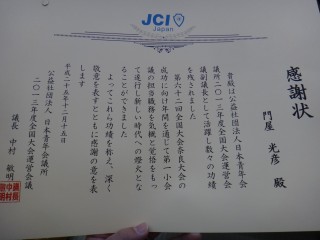 JCI
Japan
感謝状
門屋 光彦 殿
貴殿は公益社団法人日本青年会
議所二〇一三年度全国大会運営会
議副議長として活躍し数々の功績
を残されました
第六十二回全国大会奈良大会の
成功に向け年間を通して第一小会
議の担当職務を気概と覚悟をもっ
て遂行し新しい時代への燈火とな
ることができました
よってこれら功績を称え、深く
敬意を表すとともに感謝の意を表
します
平成二十五年十二月十五日
公益社団法人 日本青年会議所
二〇一三年度全国大会運営会議
議長 中村 敏明